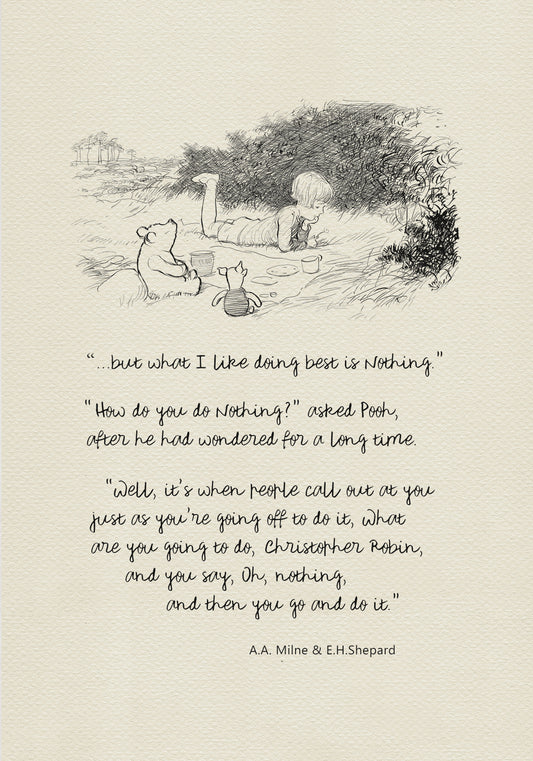 “...but what I like doing best is Nothing.”
"How do you do Nothing?" asked Pooh,
after he had wondered for a long time.
"Well, it's when people call out at you
just as you're going off to do it, What
are you going to do, Christopher Robin,
and you say, Oh, nothing,
and then you go and do it."
A.A. Milne & E.H.Shepard